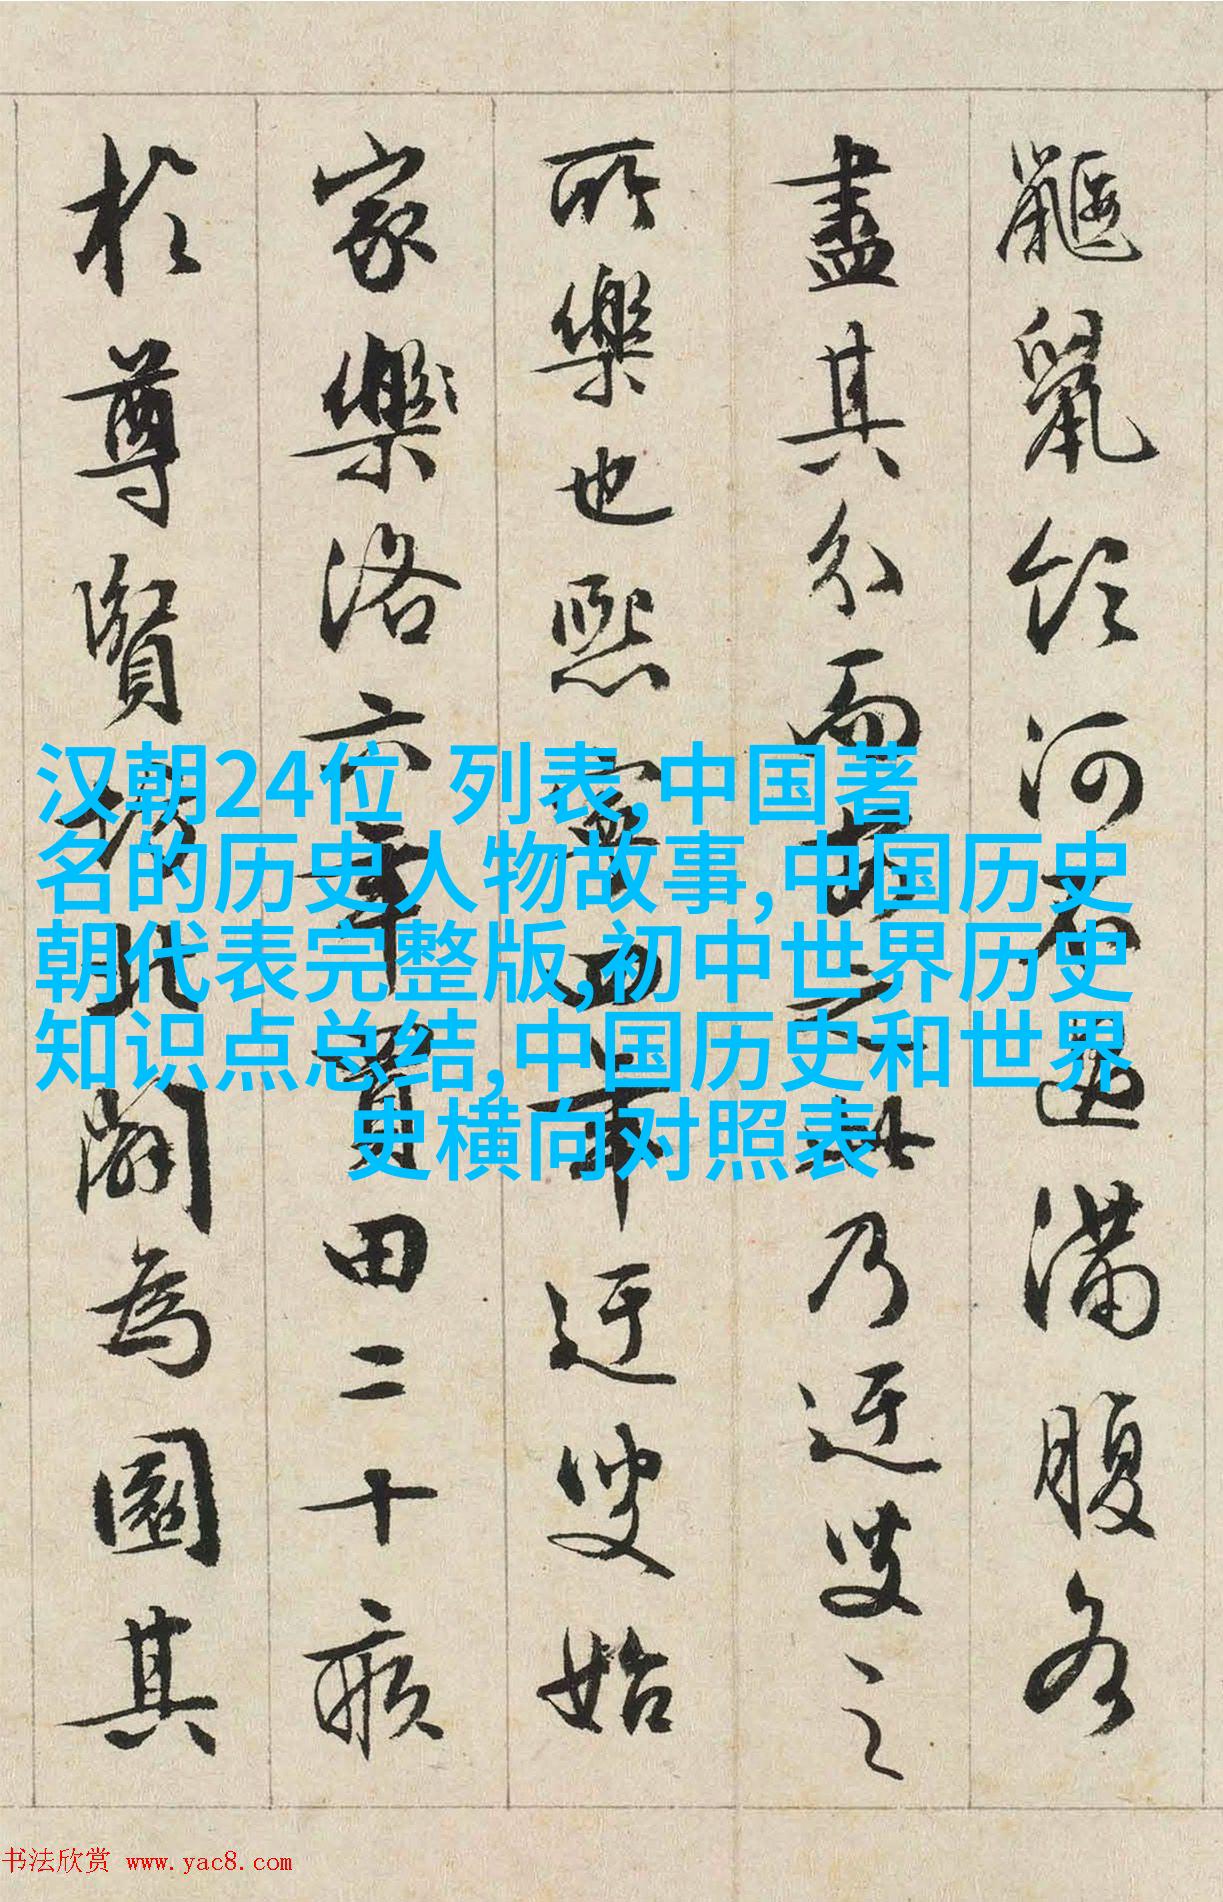 鼴鼠飲河不過滿腹各
盡其分而安之此乃迂叟之
所樂也熙寧四年迂叟始
家樂洛六年買田二十畝
於尊賢坊北闢為園其
汉朝24位 列表,中国著
名的历史人物故事,中国历史
朝代表完整版,初中世界历史
知识点总结,中国历史和世界
史横向对照表
书法欣赏 www.yac8.com